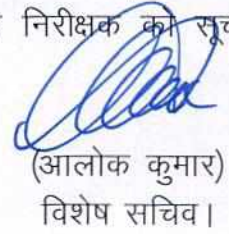 निरीक्षक को
(आलोक कुमार)
विशेष सचिव।